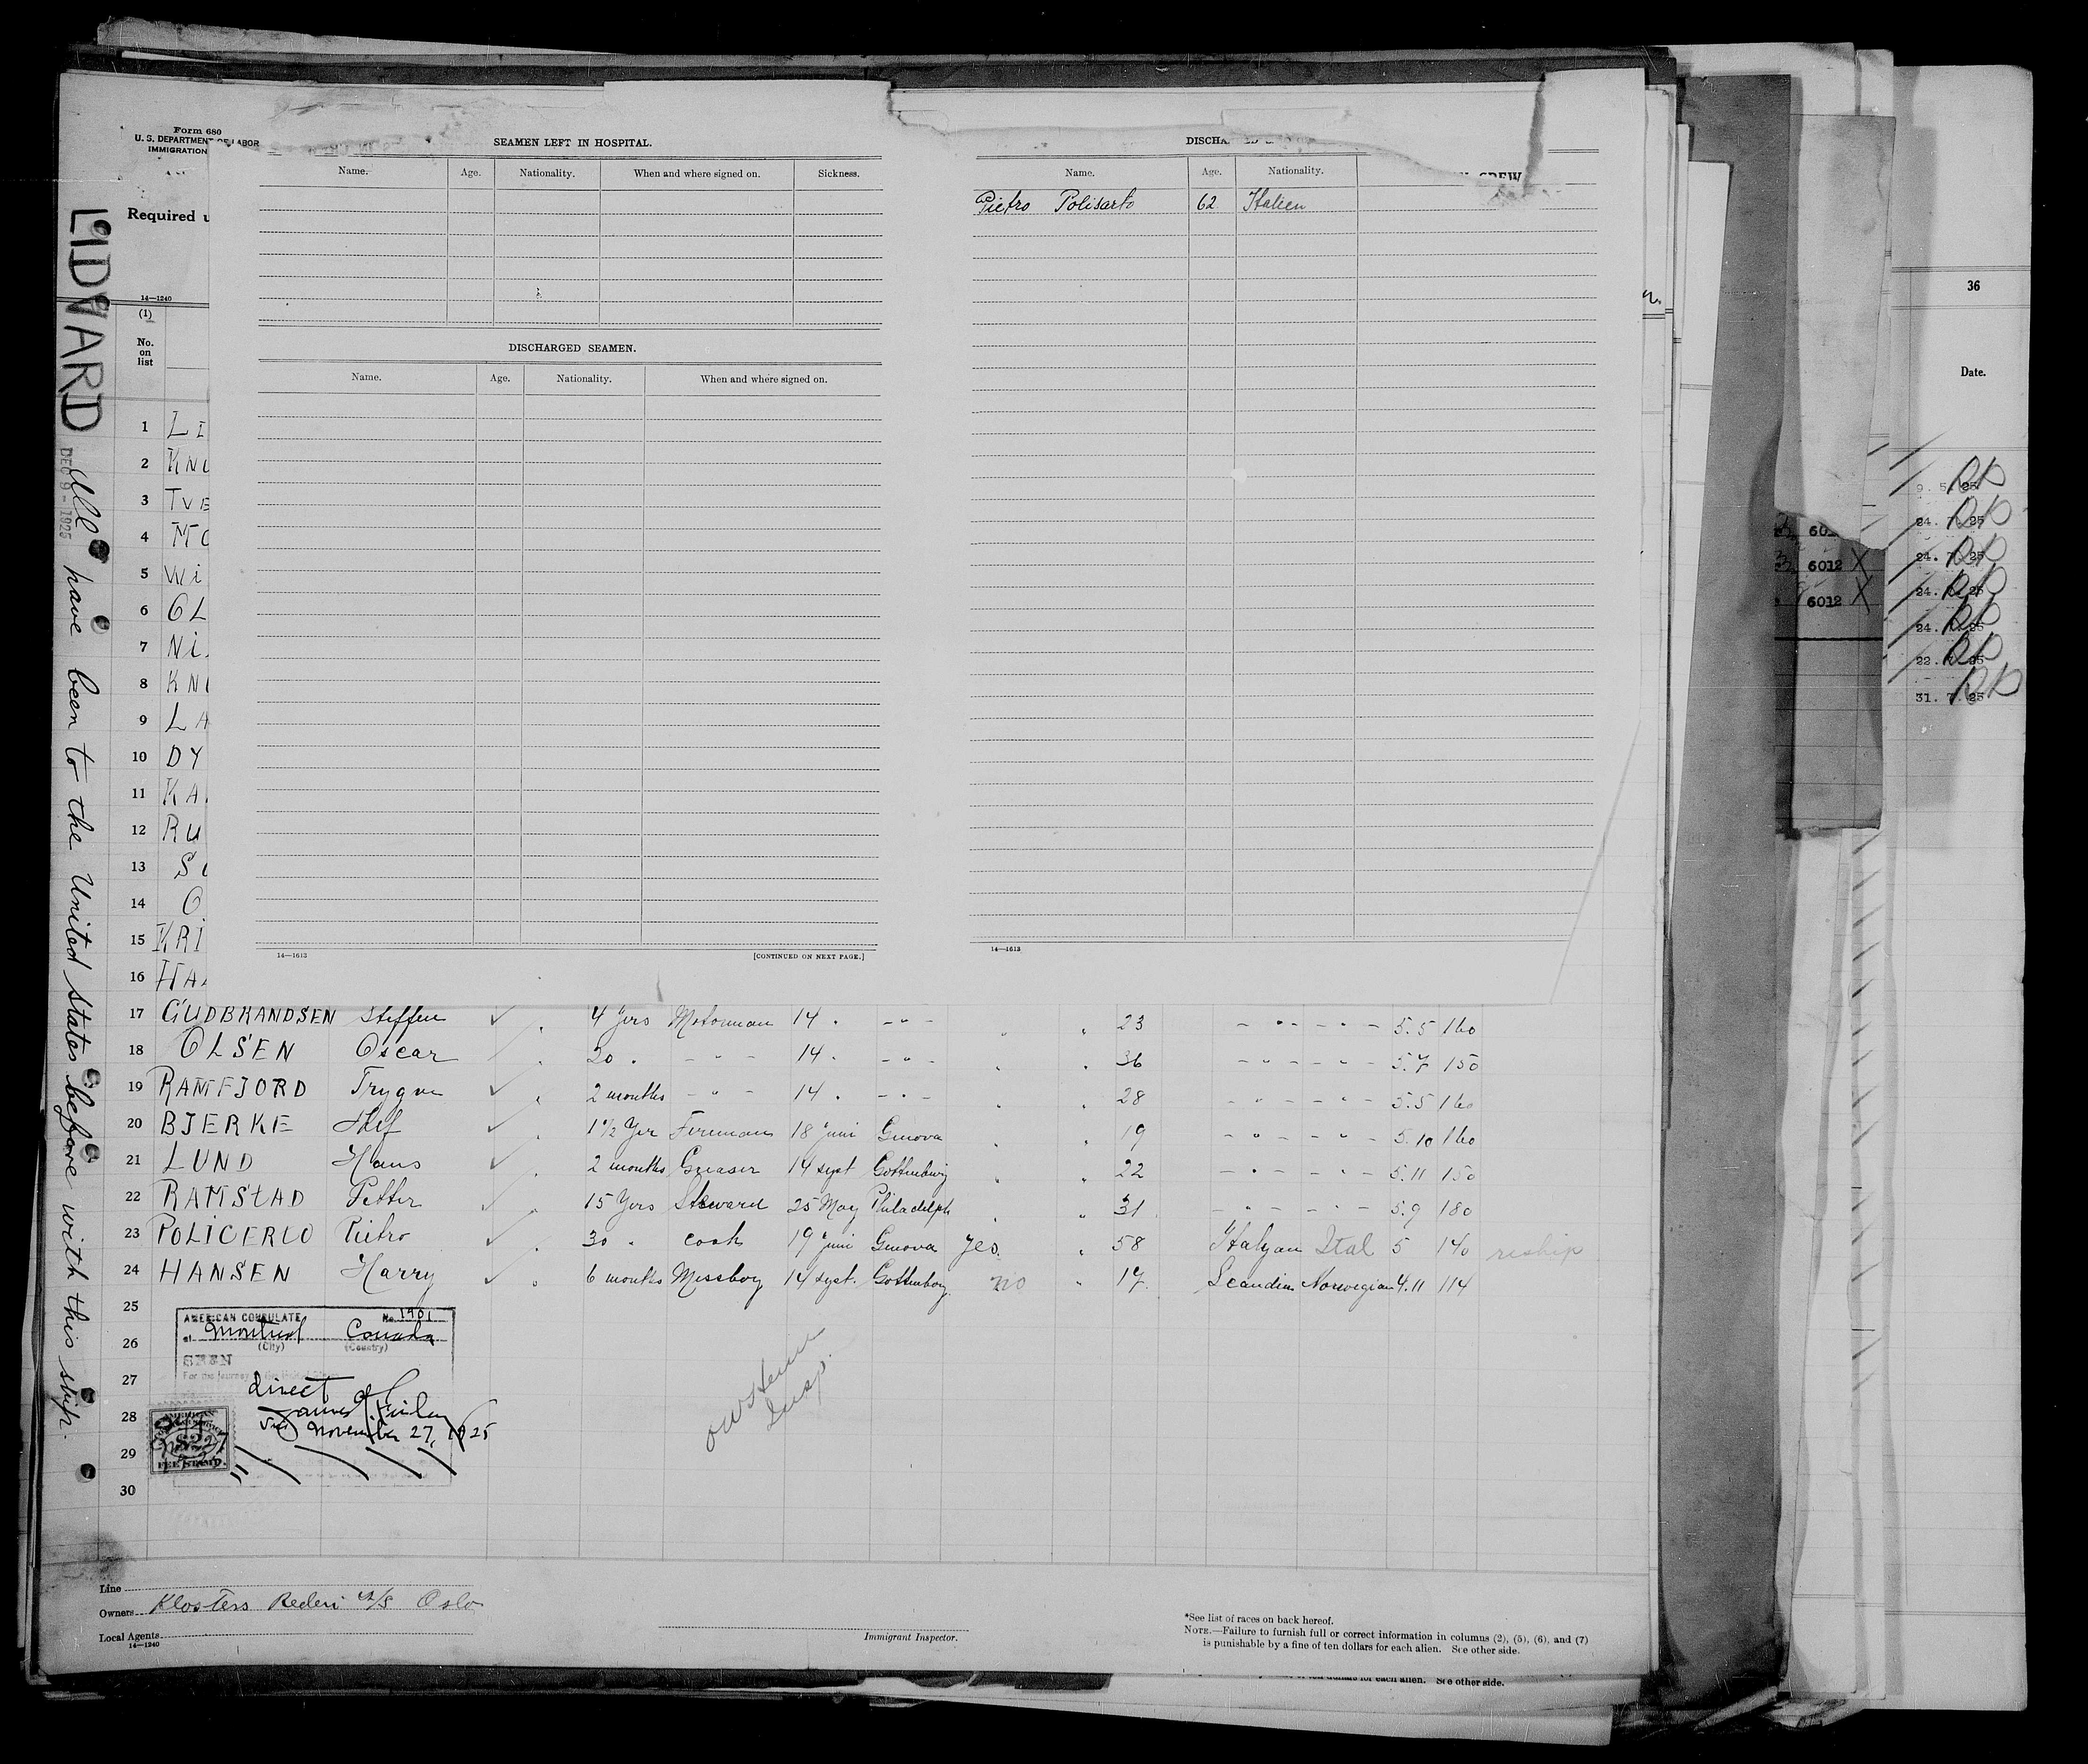 Form 680
U. S. DEPARTMENT OF LABOR
IMMIGRATION
Required u
14—1240
LIDVARD
DEC 9 - 1925
All have been to the United States before with this ship.
SEAMEN LEFT IN HOSPITAL.
Name. Age. Nationality. When and where signed on. Sickness.
DISCHARGED SEAMEN.
Name. Age. Nationality. When and where signed on.
14—1613 [CONTINUED ON NEXT PAGE.]
DISCHA
Name. Age. Nationality.
CREW
Pietro Polisarto 62 Italien
14—1613
(1)
No. on list
1 LI
2 KNU
3 TVE
4 MO
5 Wi
6 OL
7 Ni
8 KNU
9 LA
10 DY
11 KA
12 RU
13 S
14 O
15 KRI
16 HA
17 GUDBRANDSEN Steffen 4 Yers Motorman 14 . - " - 23 - " - - " - 5.5 160
18 OLSEN Oscar 20 . - " - 14 . - " - 36 - " - - " - 5.7 150
19 RAMFJORD Trygve 2 months - " - 14 . - " - 28 - " - - " - 5.5 160
20 BJERKE 1½ Yer Fireman 18 Juni Genova 19 - " - - " - 5.10 160
21 LUND Hans 2 months Greaser 14 sept Gottenburg 22 - " - - " - 5.11 150
22 RAMSTAD Petter 15 Yers Steward 25 May Philadelph 31 - " - - " - 5.9 180
23 POLICERTO Pietro 30 " cook 19 Juni Genova yes. " 58 Italyan Ital 5 140 reship
24 HANSEN Harry 6 months Messboy 14 sept. Gottenborg no " 17 Scandin Norwegian 4.11 114
25
26
27
28
29
30
AMERICAN CONSULATE No. 1901
at Montreal Canada
(City) (Country)
SEEN
For the journey
direct
November 27, 1925
FEE STAMP.
Insp.
Line
Owners Klosters Rederi A/S Oslo
Local Agents
14—1240
Immigrant Inspector.
*See list of races on back hereof.
NOTE.—Failure to furnish full or correct information in columns (2), (5), (6), and (7)
is punishable by a fine of ten dollars for each alien. See other side.
for each alien. See other side.
36
Date.
9. 5. 25
24. 7. 25
24. 7. 25
24. 7. 25
24. 7. 25
22. 7. 25
31. 7. 25
6012 X
6012 X